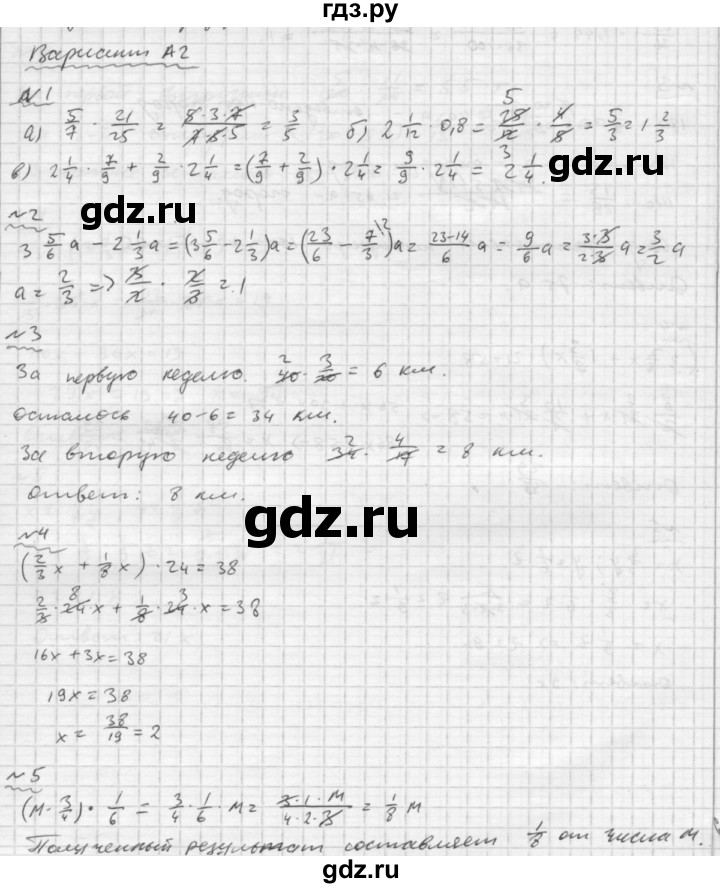 гдз.ру
Вариант А2
№1
а) 5/7 · 21/25 = 5·3·7/7·5·5 = 3/5 б) 2 1/12 · 0,8 = 25/12 · 4/5 = 5/3 = 1 2/3
в) 2 1/4 · 7/9 + 2/9 · 2 1/4 = (7/9 + 2/9) · 2 1/4 = 9/9 · 2 1/4 = 2 1/4.
gdz.ru
№2
3 5/6 a - 2 1/3 a = (3 5/6 - 2 1/3)a = (23/6 - 7/3 \2)a = 23-14/6 a = 9/6 a = 3·3/2·3 a = 3/2 a
a = 2/3 => 3/2 · 2/3 = 1
№3
За первую неделю. 40 · 3/20 = 6 км.
осталось 40-6 = 34 км.
За вторую неделю 34 · 4/17 = 8 км.
ответ: 8 км.
gdz.ru
№4
(2/3 x + 1/8 x) · 24 = 38
2/3 · 24 x + 1/8 · 24 · x = 38
16x + 3x = 38
19x = 38
x = 38/19 = 2
№5
(м · 3/4) · 1/6 = 3/4 · 1/6 · м = 3·1·м/4·2·3 = 1/8 м
Полученный результат составляет 1/8 от числа м.
gdz.ru